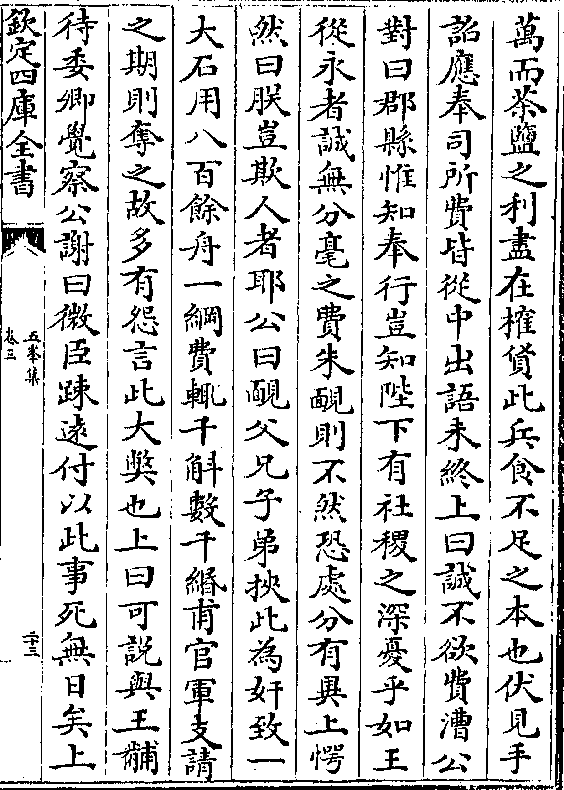 萬而茶鹽之利盡在榷貨此兵食不足之本也伏見手
詔應奉司所費皆從中出語未終上曰誠不欲費漕公
對曰郡縣惟知奉行豈知陛下有社稷之深憂乎如王
從永者誠無分毫之費朱靦則不然恐處分有異上愕
然曰朕豈欺人者耶公曰靦父兄子弟挾此為奸致一
大石用八百餘舟一綱費輒千斛數千緡甫官軍支請
之期則奪之故多有怨言此大弊也上曰可說與王黼
待委卿覺察公謝曰微臣踈逺付以此事死無日矣上
欽定四庫全書
五峯集
卷三
二十三